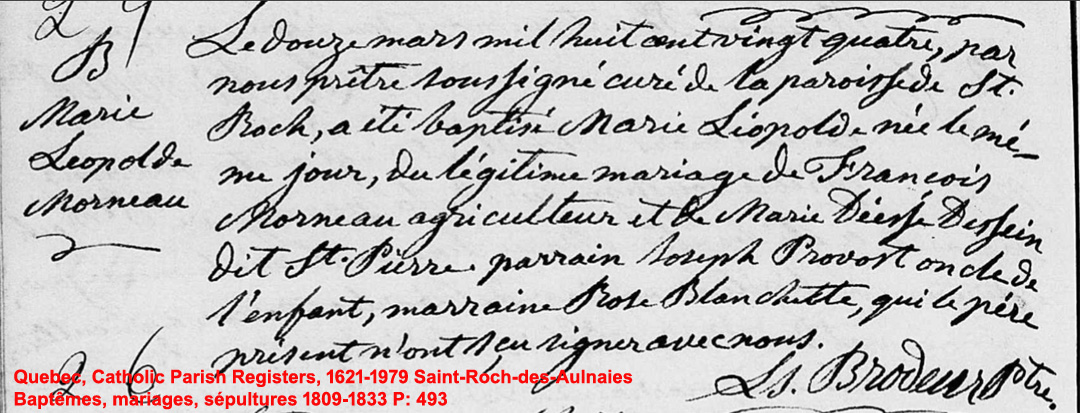 B
Marie
Leopolde
Morneau
Le douze mars mil huit cent vingt quatre, par
nous prêtre soussigné curé de la paroisse de St.
Roch, a été baptisé Marie Léopolde née le mê-
me jour, du légitime mariage de François
Morneau agriculteur et de Marie Déesse Dessein
dit St. Pierre. parrain Joseph Provost oncle de
l'enfant, marraine Rose Blanchette, qui le père
présent n'ont sçu signer avec nous.
Ls. Brodeur Ptre.
26
Quebec, Catholic Parish Registers, 1621-1979 Saint-Roch-des-Aulnaies
Baptêmes, mariages, sépultures 1809-1833 P: 493